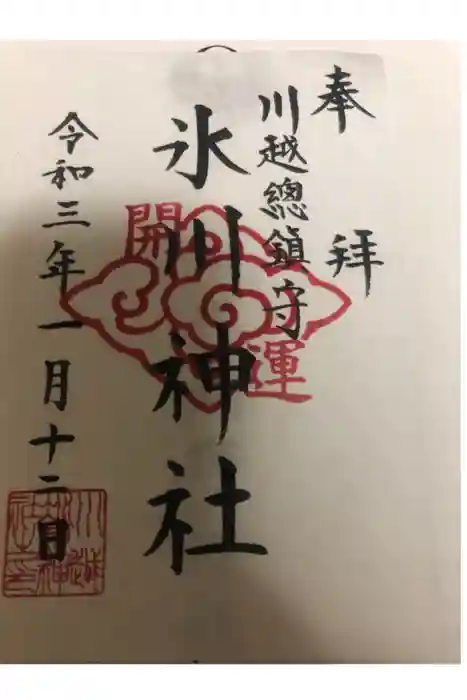 奉拝
川越總鎮守
氷川神社
令和三年一月十二日
開運